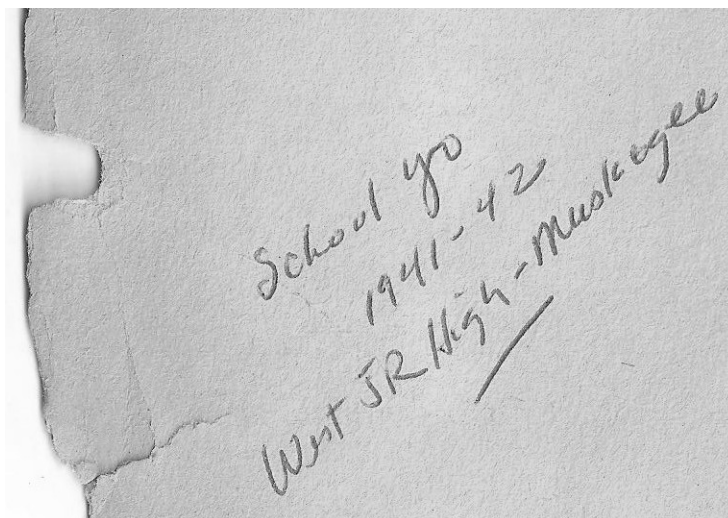 School yr
1941-42
West JR High-Muskogee